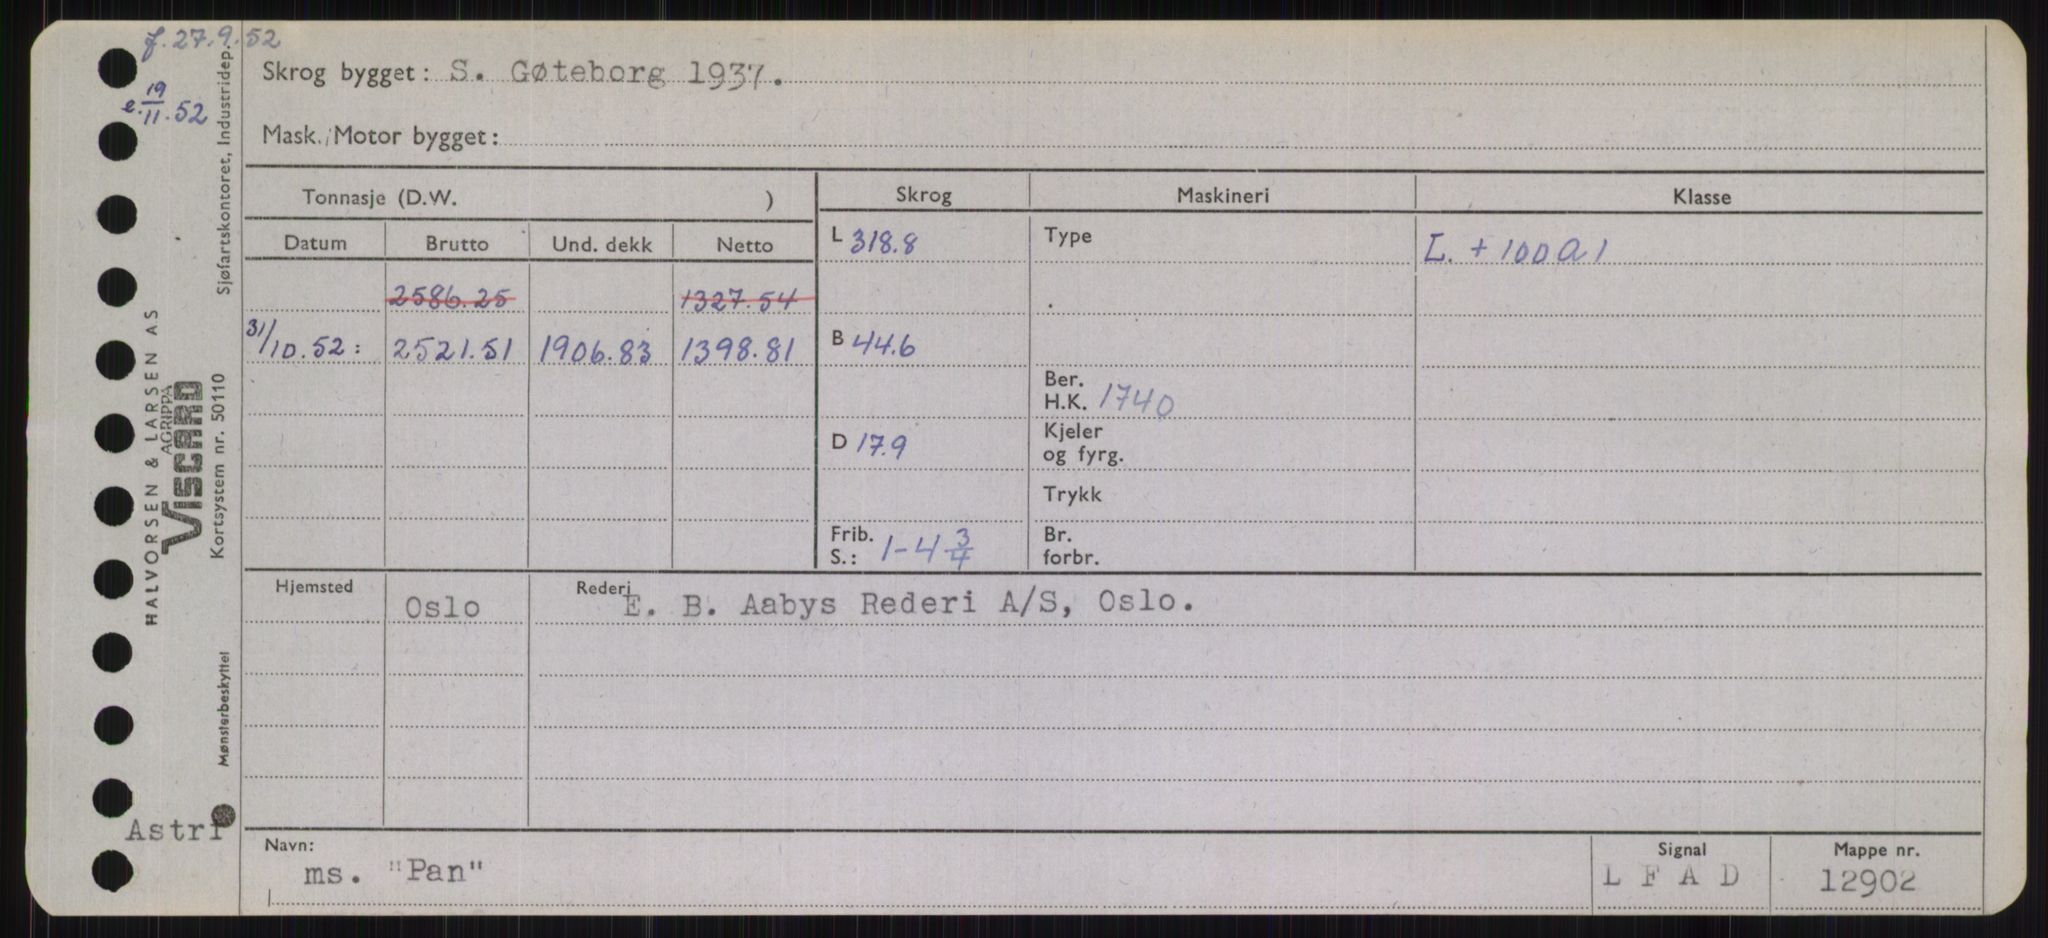 f. 27.9.52
e. 19/11.52
Skrog bygget: S. Gøteborg 1937.
Mask./Motor bygget:
Tonnasje (D.W. )
Skrog Maskineri Klasse
Datum Brutto Und. dekk Netto
L 318.8 Type L. + 100 A 1
2586.25 1327.54
31/10.52: 2521.51 1906.83 1398.81
B 44.6
Ber.
H.K. 1740
D 17.9
Kjeler
og fyrg.
Trykk
Frib.
S.: 1-4 3/4
Br.
forbr.
Hjemsted Oslo Rederi E. B. Aabys Rederi A/S, Oslo.
Navn: ms. "Pan"
Signal L F A D
Mappe nr. 12902
Astri
HALVORSEN & LARSEN AS
AGRIPPA
VISCARD
Kortsystem nr. 50110
Sjøfartskontoret, Industridep.
Mønsterbeskyttet